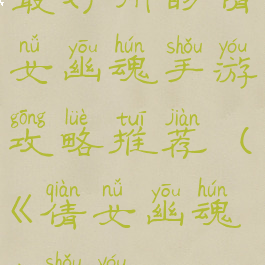 最好听的倩
nǚ yōu hún shǒu yóu
女幽魂手游
gōng lüè tuī jiàn
攻略推荐（
qiàn nǚ yōu hún
《倩女幽魂
shǒu yóu